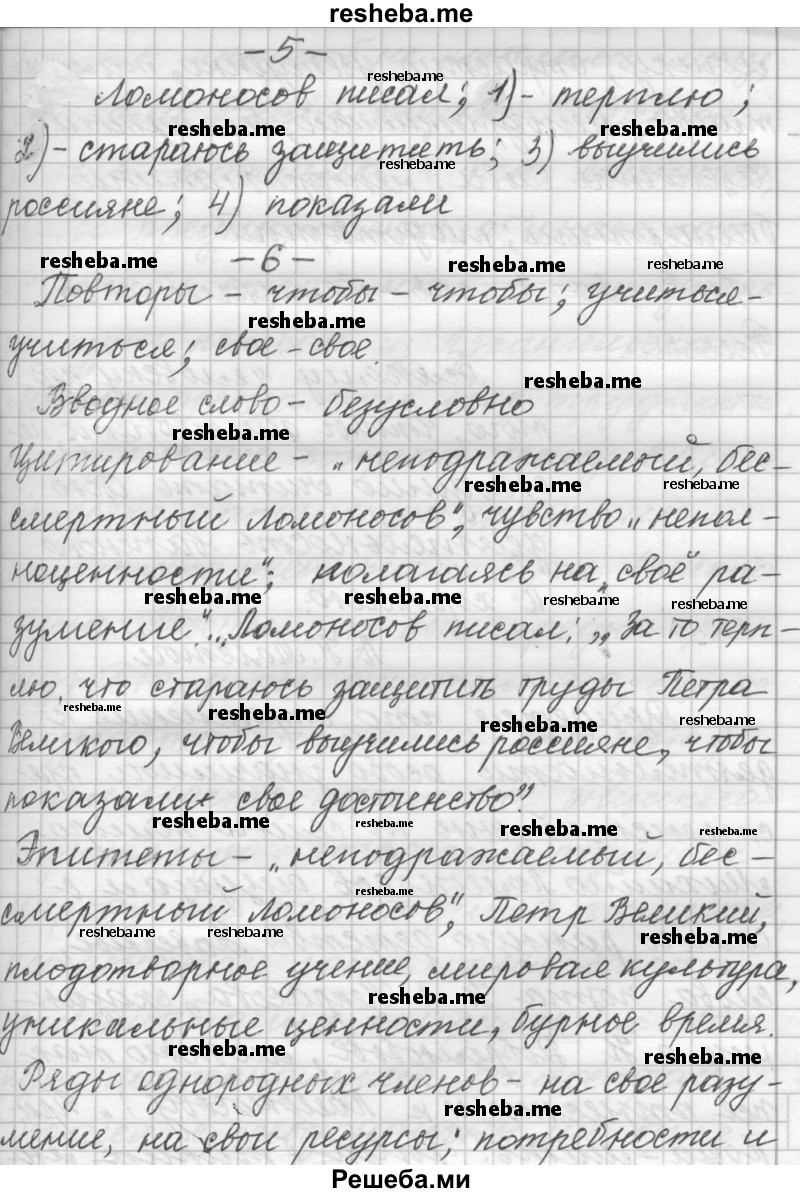 resheba.me
-5-
Ломоносов писал; 1)- терплю;
2)- стараюсь защитить; 3) выучились
россияне; 4) показали
-6-
Повторы - чтобы - чтобы; учиться-
учиться; свое - свое.
Вводное слово - безусловно
Цитирование - „неподражаемый, бес-
смертный Ломоносов", чувство „непол-
ноценности"; полагаясь на „своё ра-
зумение". „Ломоносов писал: „За то терп-
лю, что стараюсь защитить труды Петра
Великого, чтобы выучились россияне, чтобы
показали свое достоинство".
Эпитеты - „неподражаемый, бес-
смертный Ломоносов", Петр Великий,
плодотворное учение, мировая культура,
уникальные ценности, бурное время.
Ряды однородных членов - на свое разу-
мение, на свои ресурсы; потребности и
Решеба.ми